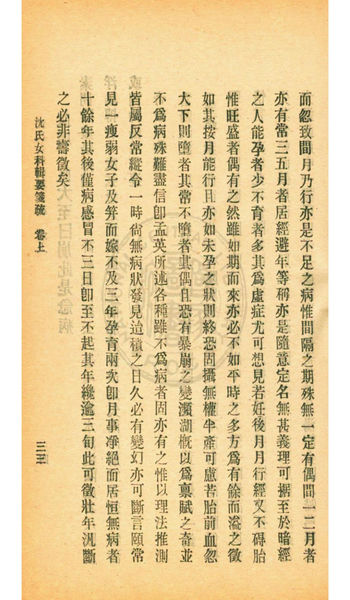 而忽致間月乃行亦是不足之病惟間隔之期殊無一定有偶間一二月者
亦有常三五月者居經避年等稱亦是隨意定名無甚義理可據至於暗經
之人能孕者少不育者多其爲虛症尤可想見若妊後月月行經又不碍胎
惟旺盛者偶有之然雖如期而來亦必不如平時之多方爲有餘而溢之徵
如其按月能行且亦如未孕之狀則終恐固攝無權半產可慮若胎前血忽
大下則墮者其常不墮者其偶且恐有暴崩之變瀕湖槪以爲禀賦之奇並
不爲病殊難盡信卽孟英所述各種雖不爲病者固亦有之惟以理法推測
皆屬反常縱令一時尙無病狀發見迨積之日久必有變幻亦可斷言頤常
見一瘦弱女子及笄而嫁不及三年孕育兩次卽月事凈絕而居恒無病者
十餘年其後僅病感冒不三日卽至不起其年纔逾三旬此可徵壯年汛斷
之必非壽徵矣
沈氏女科輯要箋疏 卷上
三三